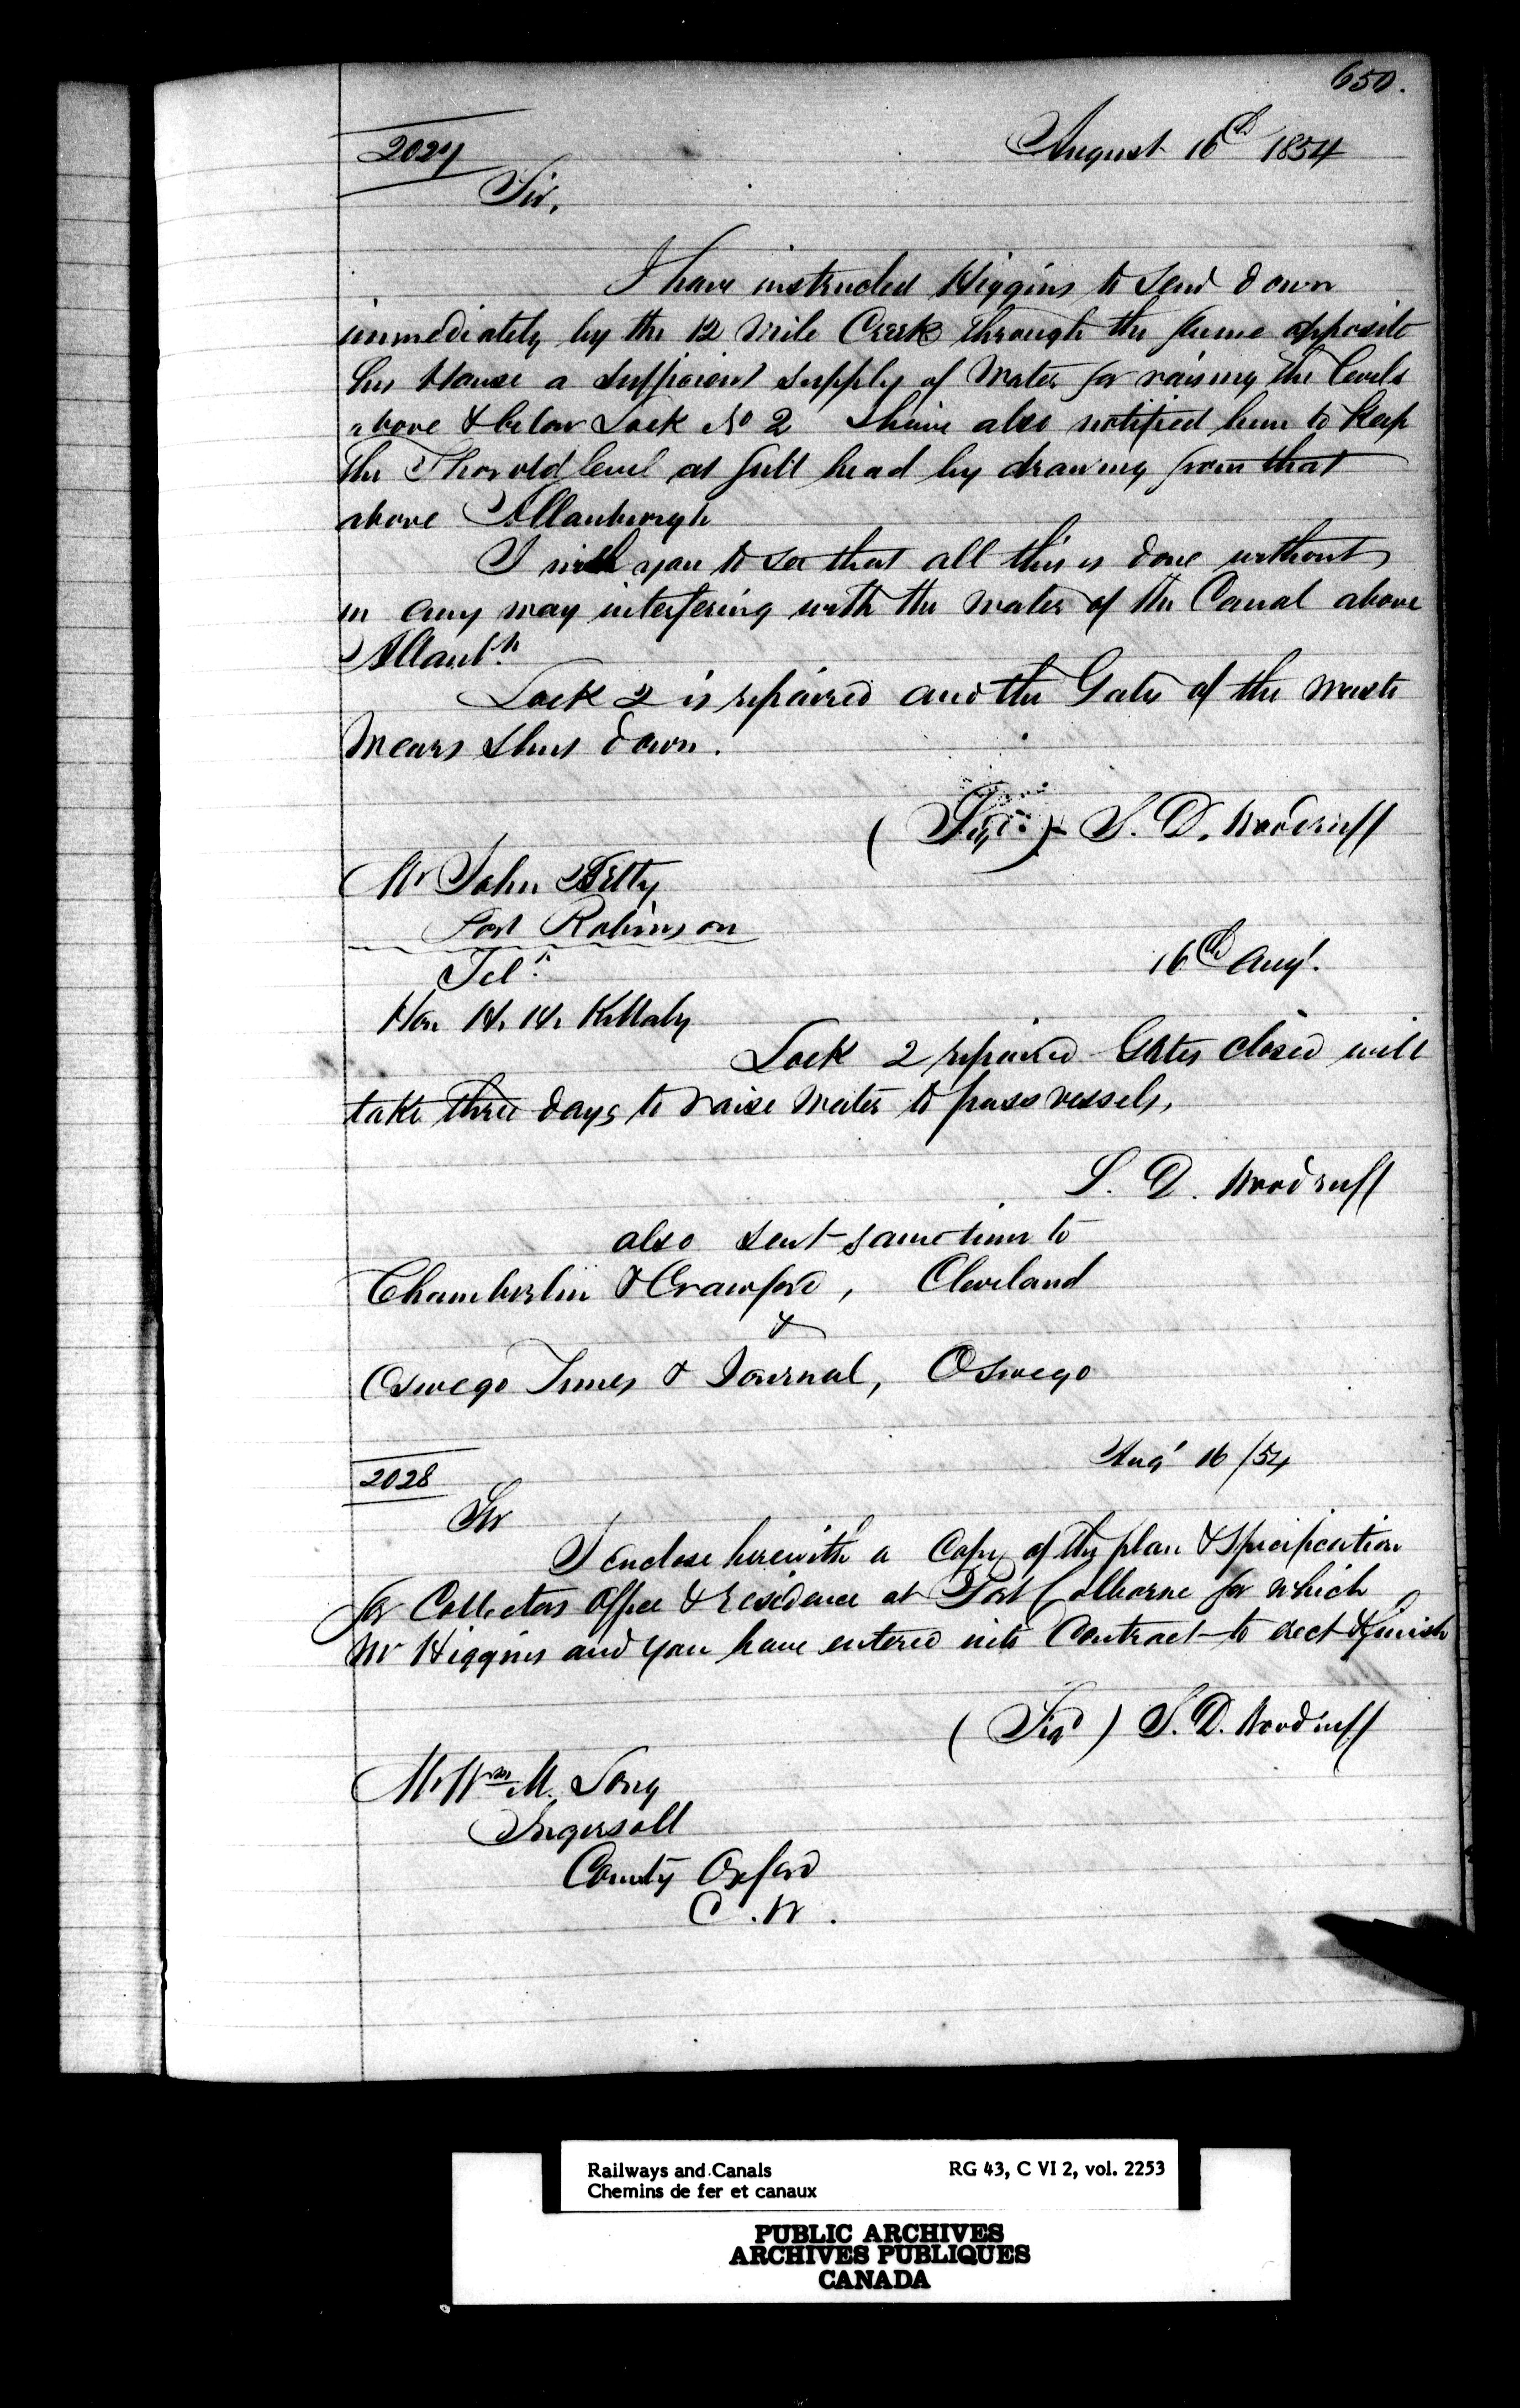 650.
2027
August 16th 1854
Sir,
I have instructed Higgins to send down
immediately by the 12 Mile Creek through the flume opposite
his House a sufficient supply of Water for raising the levels
above & below Lock No 2 I have also notified him to keep
the Thorold level at full head by drawing from that
above Allanburgh
I wish you to see that all this is done without
in any way interfering with the water of the Canal above
Allanbh
Lock 2 is repaired and the Gates of the waste
Wears shut down.
(Sigd.) S. D. Woodruff
Mr John
Port Robinson
16th Augt.
Telh.
Hon H. H. Killaly
Lock 2 repaired Gates closed will
take three days to raise water to pass vessels,
S. D. Woodruff
also sent same time to
Chamberlin & Crawford, Cleveland
&
Oswego Times & Journal, Oswego
Augt 16 /54
2028
Sir
I enclose herewith a Copy of the plan & Specification
for Collectors Office & residence at Port Colborne for which
Mr Higgins and you have entered into Contract to erect & finish
(Sigd) S. D. Woodruff
Mr Wm M. Long
Ingersoll
County Oxford
C. W.
Railways and Canals RG 43, C VI 2, vol. 2253
Chemins de fer et canaux
PUBLIC ARCHIVES
ARCHIVES PUBLIQUES
CANADA